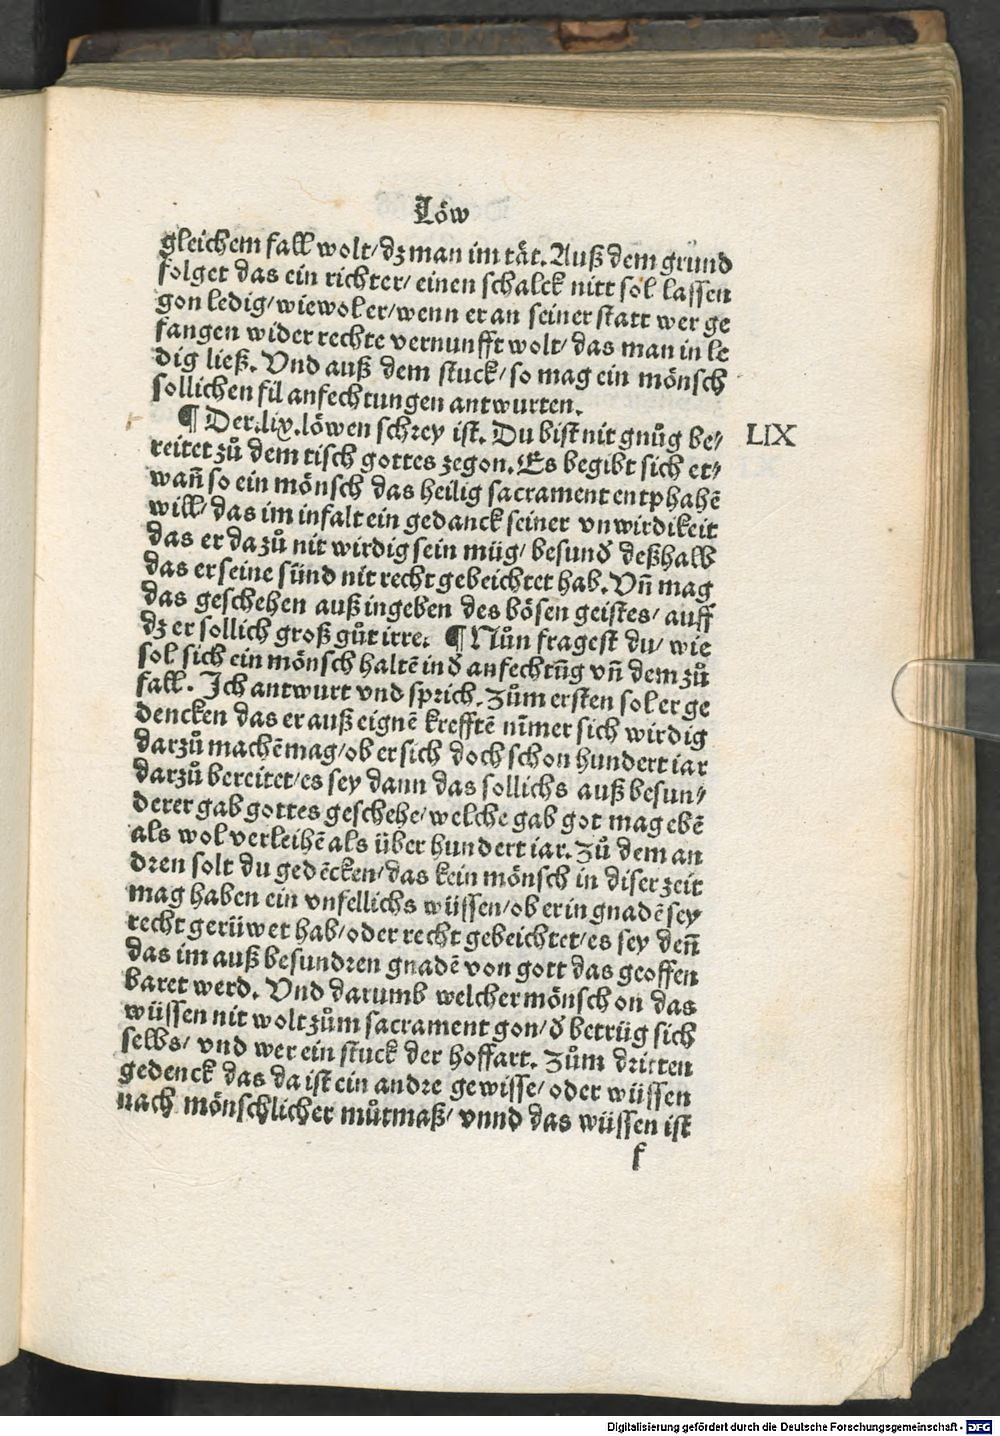 Löw
gleichem fall wolt/ dz man im tät. Auß dem grund
folget das ein richter/ einen schalck nitt sol lassen
gon ledig/ wiewol er/ wenn er an seiner statt wer ge
fangen wider rechte vernunfft wolt/ das man in le
dig ließ. Vnd auß dem stuck/ so mag ein mönsch
sollichen fil anfechtungen antwurten.
¶ Der.lix.löwen schrey ist. Du bist nit gnůg be/
LIX
reitet zů dem tisch gottes zegon. Es begibt sich et/
wañ so ein mönsch das heilig sacrament entphahē
will/ das im infalt ein gedanck seiner vnwirdikeit
das er dazů nit wirdig sein müg/ besunď deßhalb
das er seine sünd nit recht gebeichtet hab. Vñ mag
das geschehen auß ingeben des bösen geistes/ auff
dz er sollich groß gůt irre. ¶ Nůn fragest du/ wie
sol sich ein mönsch haltē in ď anfechtūg vñ dem zů
fall. Ich antwurt vnd sprich. Zům ersten sol er ge
dencken das er auß eignē krefftē nīmer sich wirdig
darzů machē mag/ ob er sich doch schon hundert iar
darzů bereitet/ es sey dann das sollichs auß besun/
derer gab gottes geschehe/ welche gab got mag ebē
als wol verleihē als über hundert iar. Zů dem an
dren solt du gedēcken/ das kein mönsch in diser zeit
mag haben ein vnfellichs wüssen/ ob er in gnadē sey
recht gerüwet hab/ oder recht gebeichtet/ es sey deñ
das im auß besundren gnadē von gott das geoffen
baret werd. Vnd darumb welcher mönsch on das
wüssen nit wolt zům sacrament gon/ ď betrüg sich
selbs/ vnd wer ein stuck der hoffart. Zům dritten
gedenck das da ist ein andre gewisse/ oder wüssen
nach mönschlicher můtmaß/ vnnd das wüssen ist
f
Digitalisierung gefördert durch die Deutsche Forschungsgemeinschaft - DFG